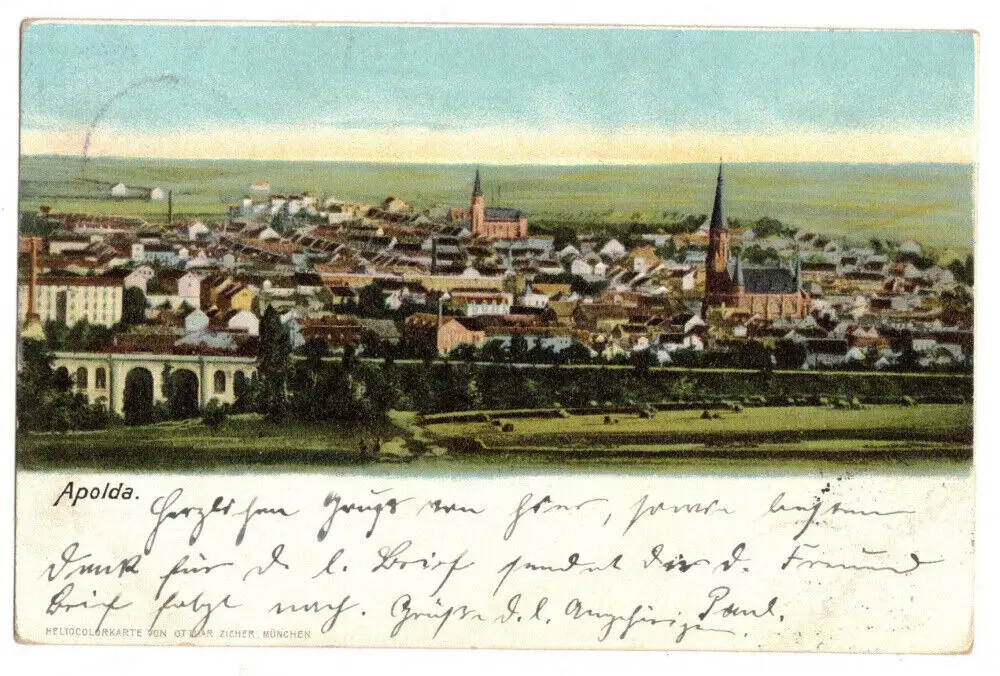 Apolda.
Herzlichen Gruß von hier, sowie besten
Dank für d. l. Brief sendet Dir d. Freund
Brief folgt nach. Grüße d. l. Angehörigen Paul.
HELIOCOLORKARTE VON OTTMAR ZIEHER, MÜNCHEN